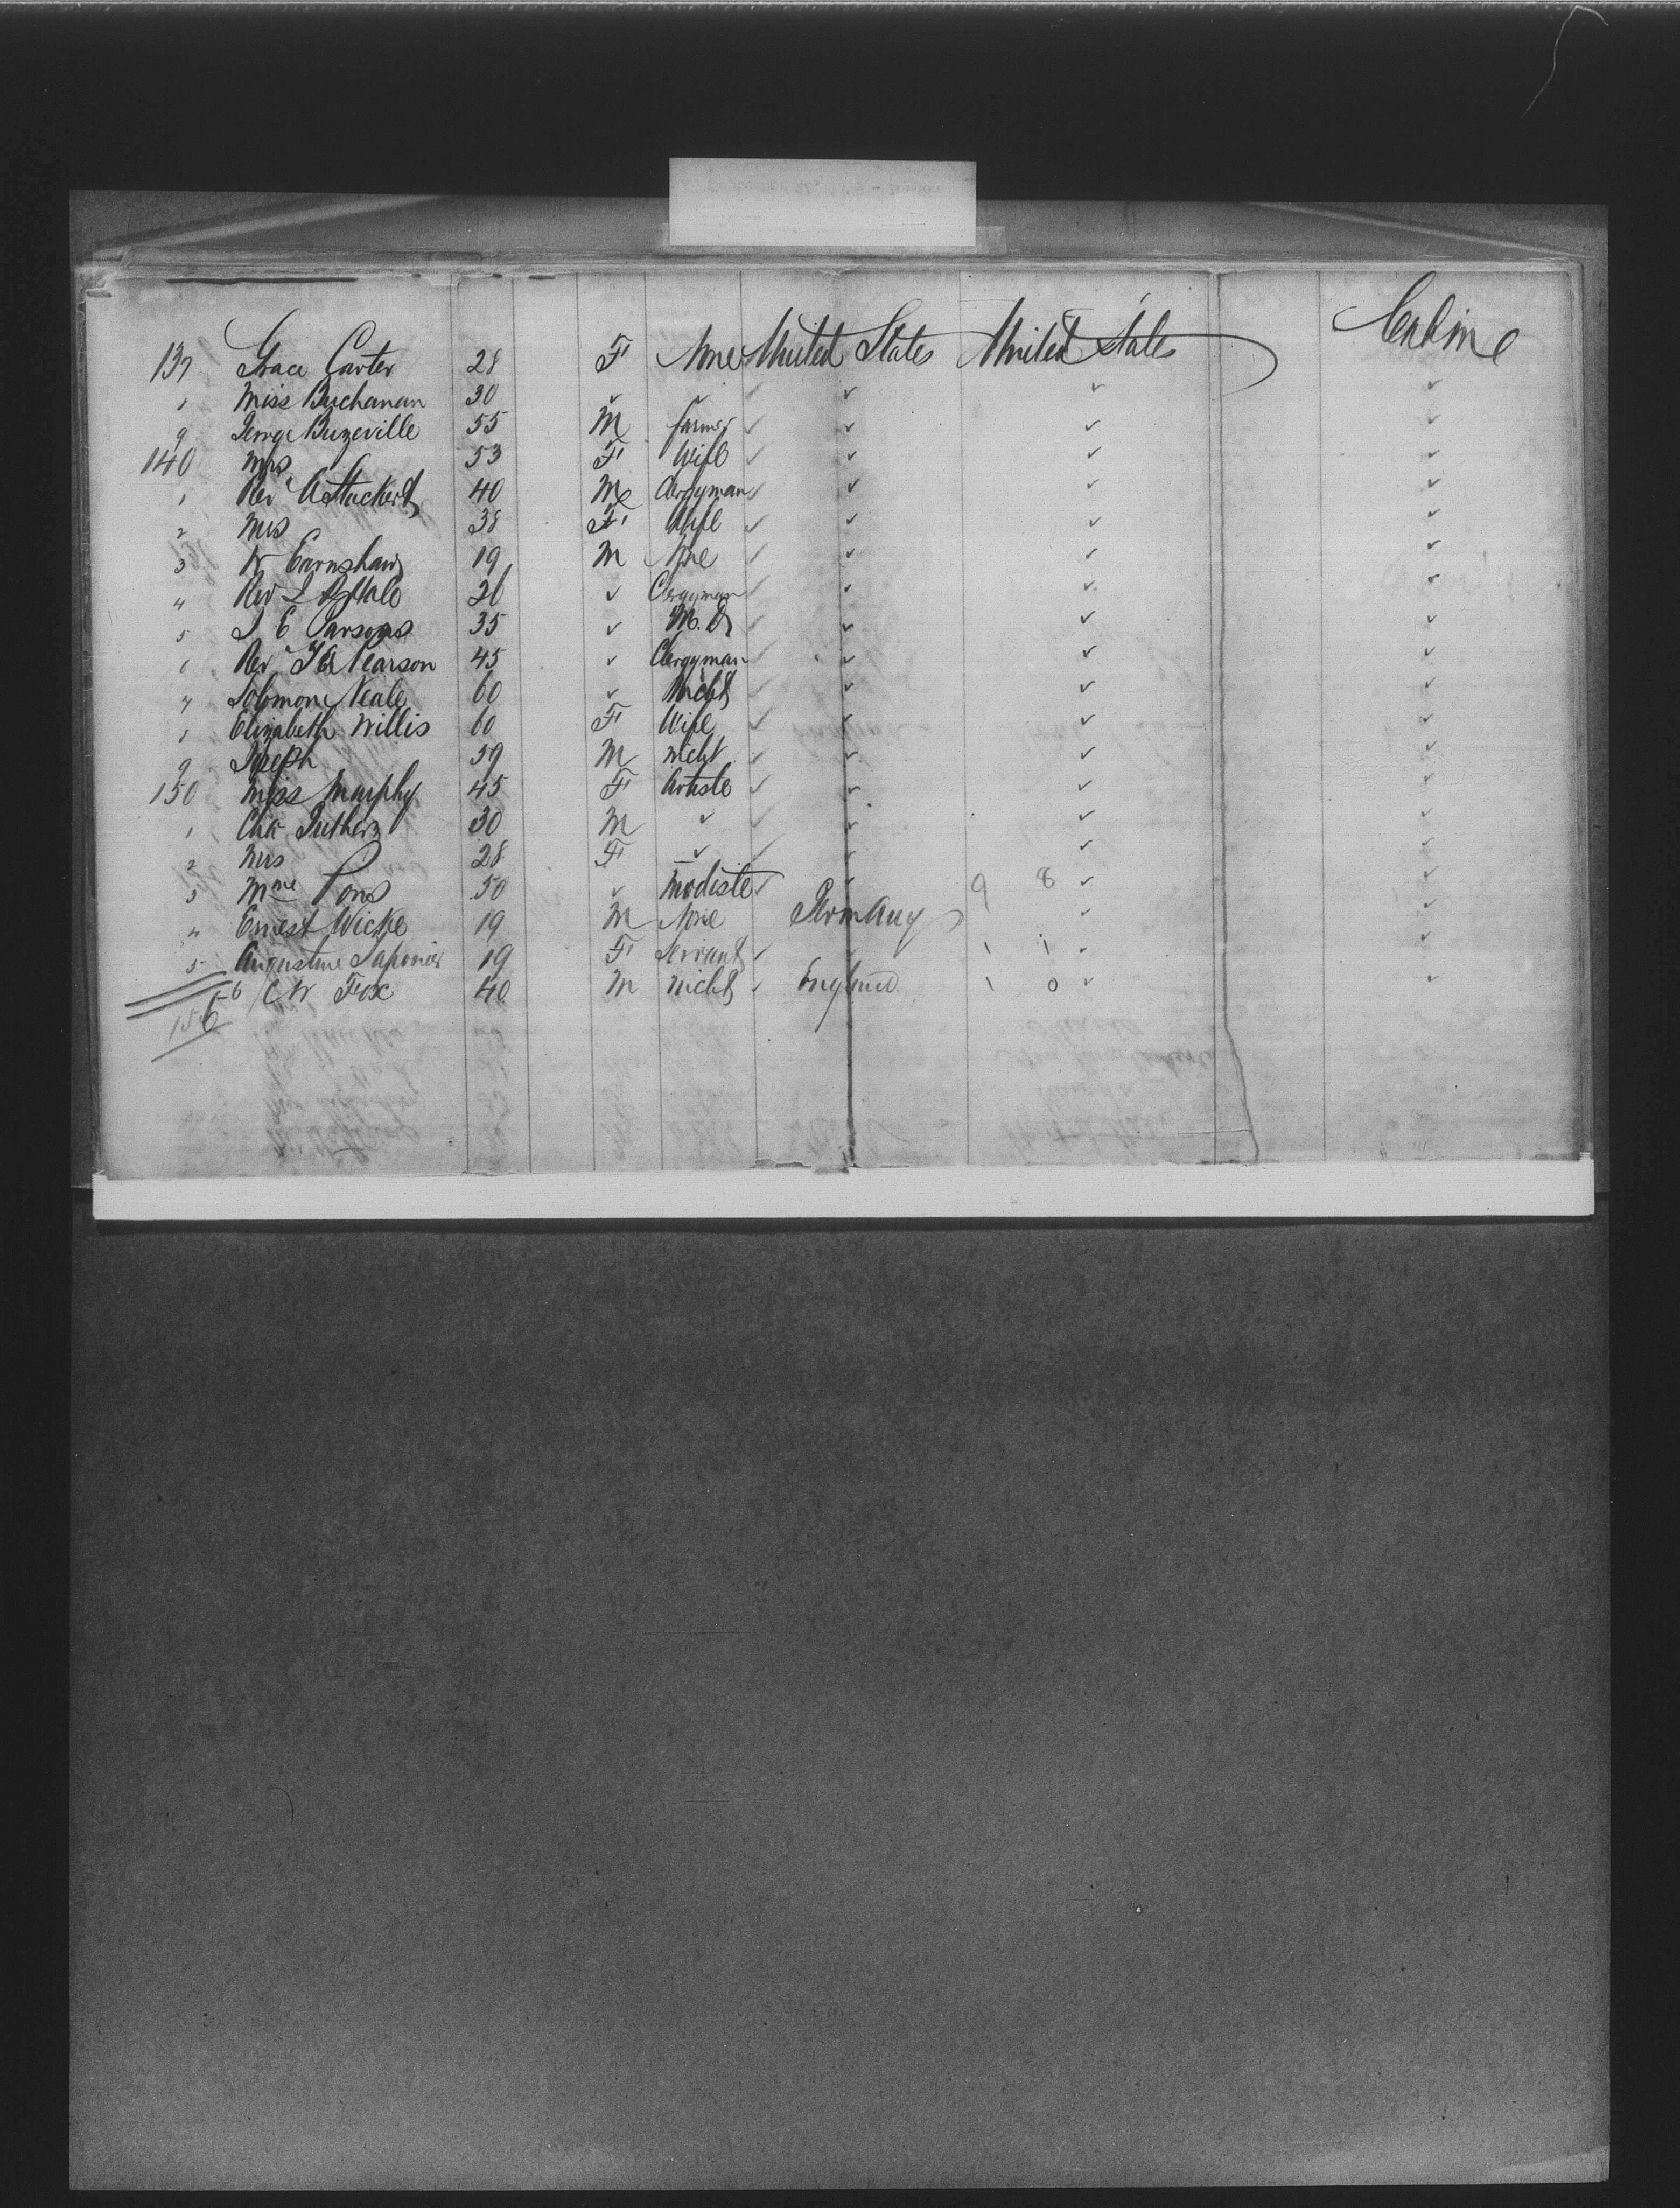 137 Grace Carter 28 F None United States United States Cabin
1 Miss Buchanan 30 ✓ ✓ ✓ ✓ ✓
9 George Buzeville 55 M Farmer ✓ ✓ ✓ ✓
140 Mrs 53 F Wife ✓ ✓ ✓ ✓
1 Rev A Stuckert 40 M Clergyman ✓ ✓ ✓ ✓
2 Mrs 38 F Wife ✓ ✓ ✓ ✓
3 W Earnshaw 19 M None ✓ ✓ ✓ ✓
4 Rev Hale ✓ Clergyman ✓ ✓ ✓ ✓
5 E Parsons 35 ✓ M.D ✓ ✓ ✓
6 Rev Pearson 45 ✓ Clergyman ✓ ✓ ✓ ✓
7 Solomon Neale 60 ✓ Mcht ✓ ✓ ✓ ✓
1 Elizabeth Willis 60 F Wife ✓ ✓ ✓ ✓
9 Joseph 59 M Mcht ✓ ✓ ✓ ✓
150 Miss Murphy 45 F Artiste ✓ ✓ ✓ ✓
1 Chs 30 M ✓ ✓ ✓ ✓ ✓
2 Mrs 28 F ✓ ✓ ✓ ✓ ✓
3 Mme Pons 50 ✓ Modiste ✓ ✓ 9 8 ✓ ✓
4 Ernest Wicke 19 M None Germany ✓ ✓
5 Augustine 19 F Servant ✓ ✓ 1 1 ✓ ✓
6 C W Fox 40 M Mcht ✓ England 1 0 ✓ ✓
156